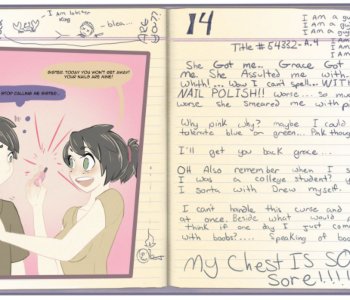 I am lobster
King
blea...
ARE
YOU?!
SISTER, TODAY YOU WON'T GET AWAY!
YOUR NAILS ARE MINE!
STOP CALLING ME SISTER...
14
I am a g
I am a guy
I am a
I am a guy
Title # 54332-A.4
She Got me.. Grace Got
me. She Assulted me with..
Whth!... Wow I can't spell... WITH
NAIL POLISH!! Worse... So much
worse she smeared me with p
Why pink why? maybe I could
tolerate blue or green... Pink though
I'll get you back grace...
OH Also remember when I s
I was a college student? y
I sorta with Drew myself.
I can't handle this curse and
at once. Beside what would
think if one day I just com
with boobs?.... Speaking of boob
My Chest IS SO
Sore!!!!!